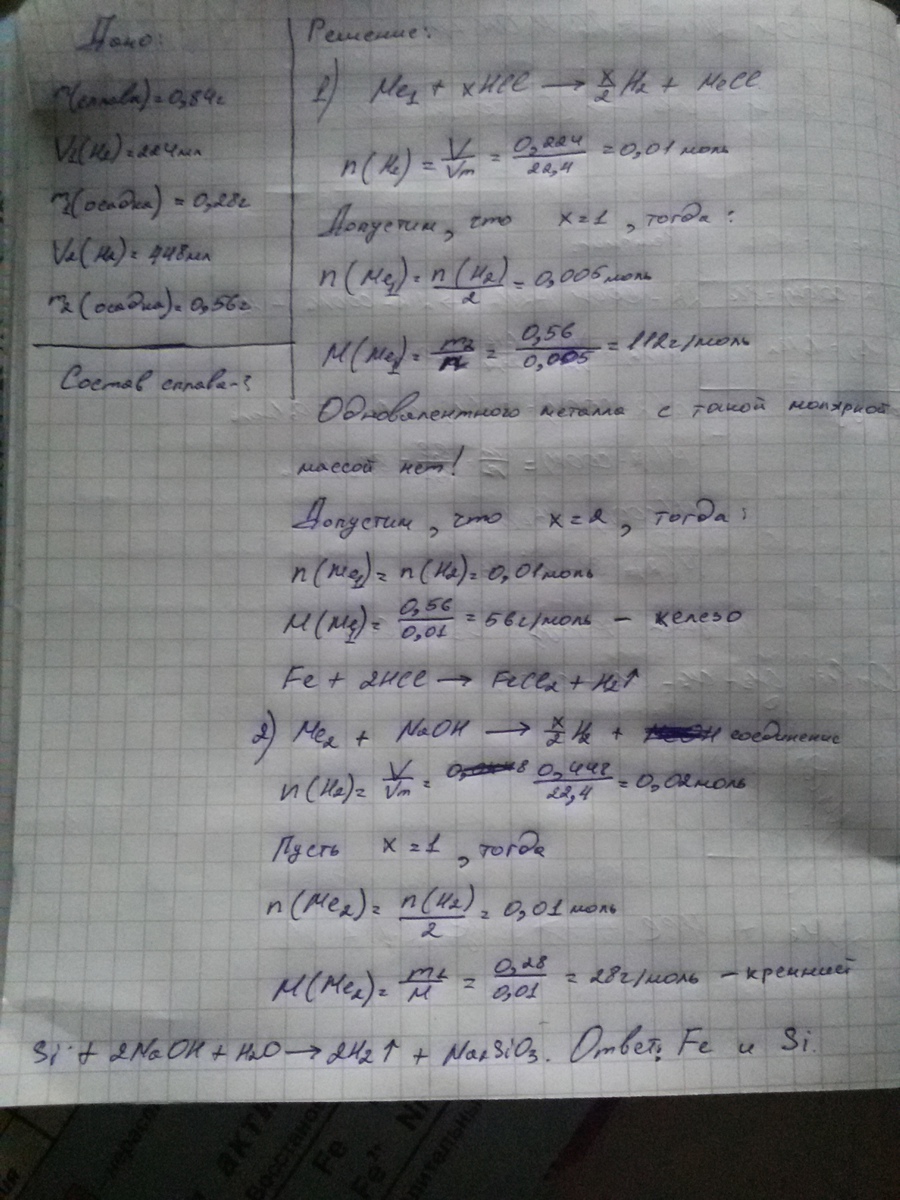 Дано:
m(сплава) = 0,84г
V1(H2) = 224мл
m1(осадка) = 0,28г
V2(H2) = 448мл
m2(осадка) = 0,56г
Состав сплава-?
Решение:
1) Me1 + xHCl → x/2 H2 + MeCl
n(H2) = V/Vm = 0,224/22,4 = 0,01 моль
Допустим, что x=1, тогда:
n(Me1) = n(H2)/2 = 0,005 моль
M(Me1) = m2/n = 0,56/0,005 = 112г/моль
Одновалентного металла с такой молярной
массой нет!
Допустим, что x=2, тогда:
n(Me1) = n(H2) = 0,01 моль
M(Me1) = 0,56/0,01 = 56г/моль - железо
Fe + 2HCl → FeCl2 + H2↑
2) Me2 + NaOH → x/2 H2 + соединение
n(H2) = V/Vm = 0,448/22,4 = 0,02 моль
Пусть x=1, тогда
n(Me2) = n(H2)/2 = 0,01 моль
M(Me2) = m1/M = 0,28/0,01 = 28г/моль - кремний
Si + 2NaOH + H2O → 2H2↑ + Na2SiO3. Ответ: Fe и Si.
акти
Восстанов
Fe
Ni
Fe2+